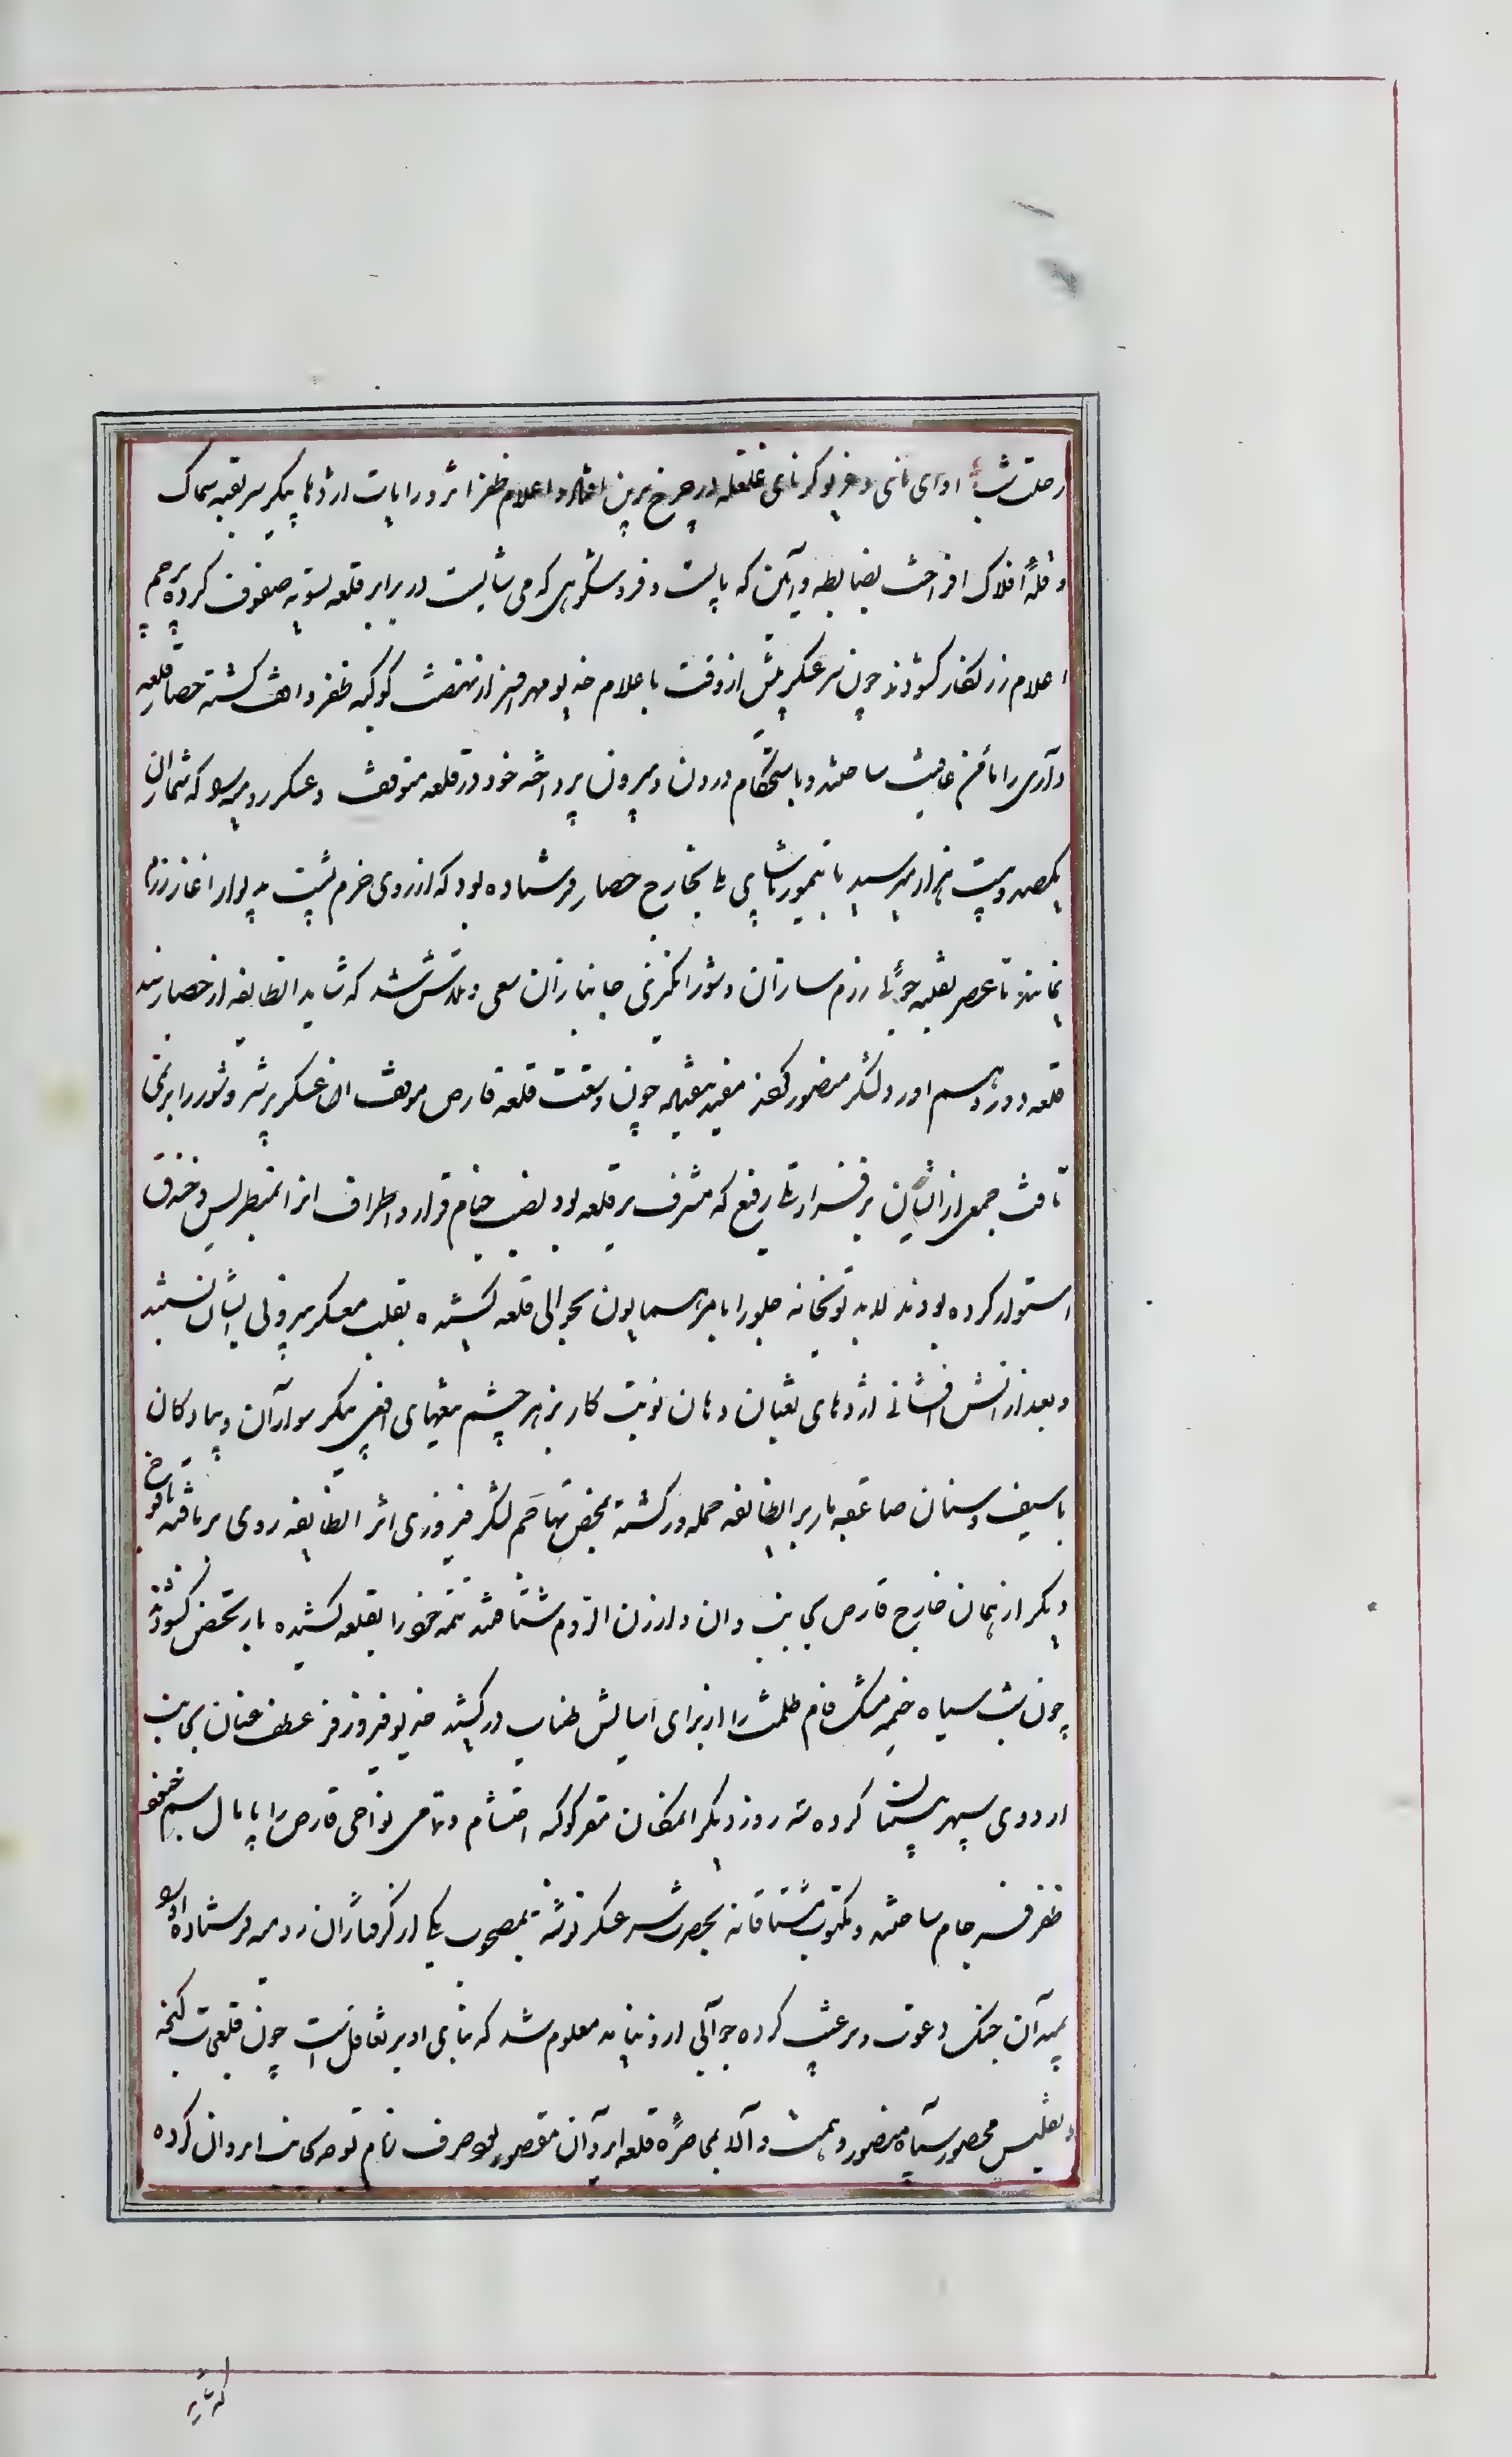 رحلت شب اوای نای و غریو کرنای غلغله در چرخ برین افکند و اعلام ظفر اثر و رایات اژدها پیکر سر بقبه سماک
و قلهٔ افلاک افراخت بضابطه و آیین که بایست و فر و شکوهی که می شایست در برابر قلعه تسویه صفوف کرده پرچم
اعلام زرنکار کشودند چون سرعسکر پیش از وقت باعلام خدیو مهر افسر از نهضت کوکبه ظفر واقف کشته حصار قلعه
داری را مأمن عافیت ساخته و باستحکام درون و بیرون پرداخته خود در قلعه متوقف و عسکر رومیه را که شمار ان
بیکصد و بیست هزار میرسید با تیمور پاشای بخارج حصار فرستاده بود که از روی حزم پشت بدیوار اغاز رزم
نمایند تا عصر بغلبه جوئی رزم سازان و شور انکیزی جانبازان سعی و تلاش شد که شاید انطایفه از حصار بند
قلعه دور و هم اورد لشکر منصور کردند مفید نیفتاد چون وسعت قلعه قارص موقف ان عسکر پر شر و شور را بر نمی
تافت جمعی از ایشان بر فراز تلی رفیع که مشرف بر قلعه بود نصب خیام قرار و اطراف انرا بمطریس و خندق
استوار کرده بودند لابد توپخانه جلو را بامر همایون بحوالی قلعه کشیده بقلب معسکر بیرونی ایشان بستند
و بعد از اتش افشانی اژدهای ثعبان دهان نوبت کار بزهر چشم تیغهای افعی پیکر سواران و پیادکان
با سیف و سنان صاعقه بار بر انطایفه حمله ور کشته بمحض تهاجم لشکر فیروزی اثر انطایفه روی برتافته فوجی
دیکر از همان خارج قارص بجانب وان و ارزن الروم شتافتند تتمه خود را بقلعه کشیده بار تحصن کشودند
چون شب سیاه خیمه مشک فام ظلمت را از برای اسایش طناب در کشید خدیو فیروز فر عطف عنان بجانب
اردوی سپهر بستان کرده سه روز دیکر المکان مقر کوکبه احتشام و تمامی نواحی قارص را پایمال سم خیول
ظفر فرجام ساخته و مکتوب مشتاقانه بحضرت سرعسکر نوشته بمصحوب یکی از کرفتاران رومیه فرستاده او را
بمیدان جنک دعوت و ترغیب کرده جوابی از و نیامد معلوم شد که بنای او بر تغافل است چون قلعتین کنجه
و تفلیس محصور سپاه منصور و همت والا بمحاصرهٔ قلعه ایروان مقصور بود صرف زمام توجه بجانب ایروان کرده
که شاید